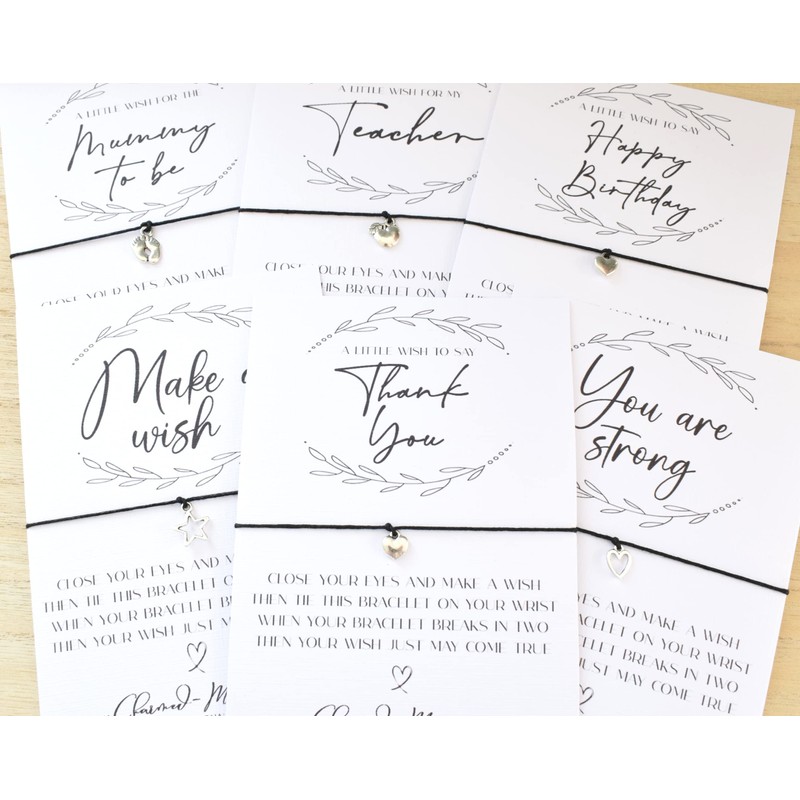 A LITTLE WISH FOR THE
Mummy
to be
CLOSE YOUR EYES AND MAKE
A LITTLE WISH FOR MY
Teacher
CLOSE YOUR EYES AND MAKE
THIS BRACELET ON YOUR
A LITTLE WISH TO SAY
Happy
Birthday
Make a
wish
CLOSE YOUR EYES AND M
THEN TIE THIS BRACELET O
WHEN YOUR BRACELET B
THEN YOUR WISH JUST M
Charmed-M
A LITTLE WISH TO SAY
Thank
You
CLOSE YOUR EYES AND MAKE A WISH
THEN TIE THIS BRACELET ON YOUR WRIST
WHEN YOUR BRACELET BREAKS IN TWO
THEN YOUR WISH JUST MAY COME TRUE
Charmed-M
You are
strong
EYES AND MAKE A WISH
BRACELET ON YOUR WRIST
BRACELET BREAKS IN TWO
JUST MAY COME TRUE